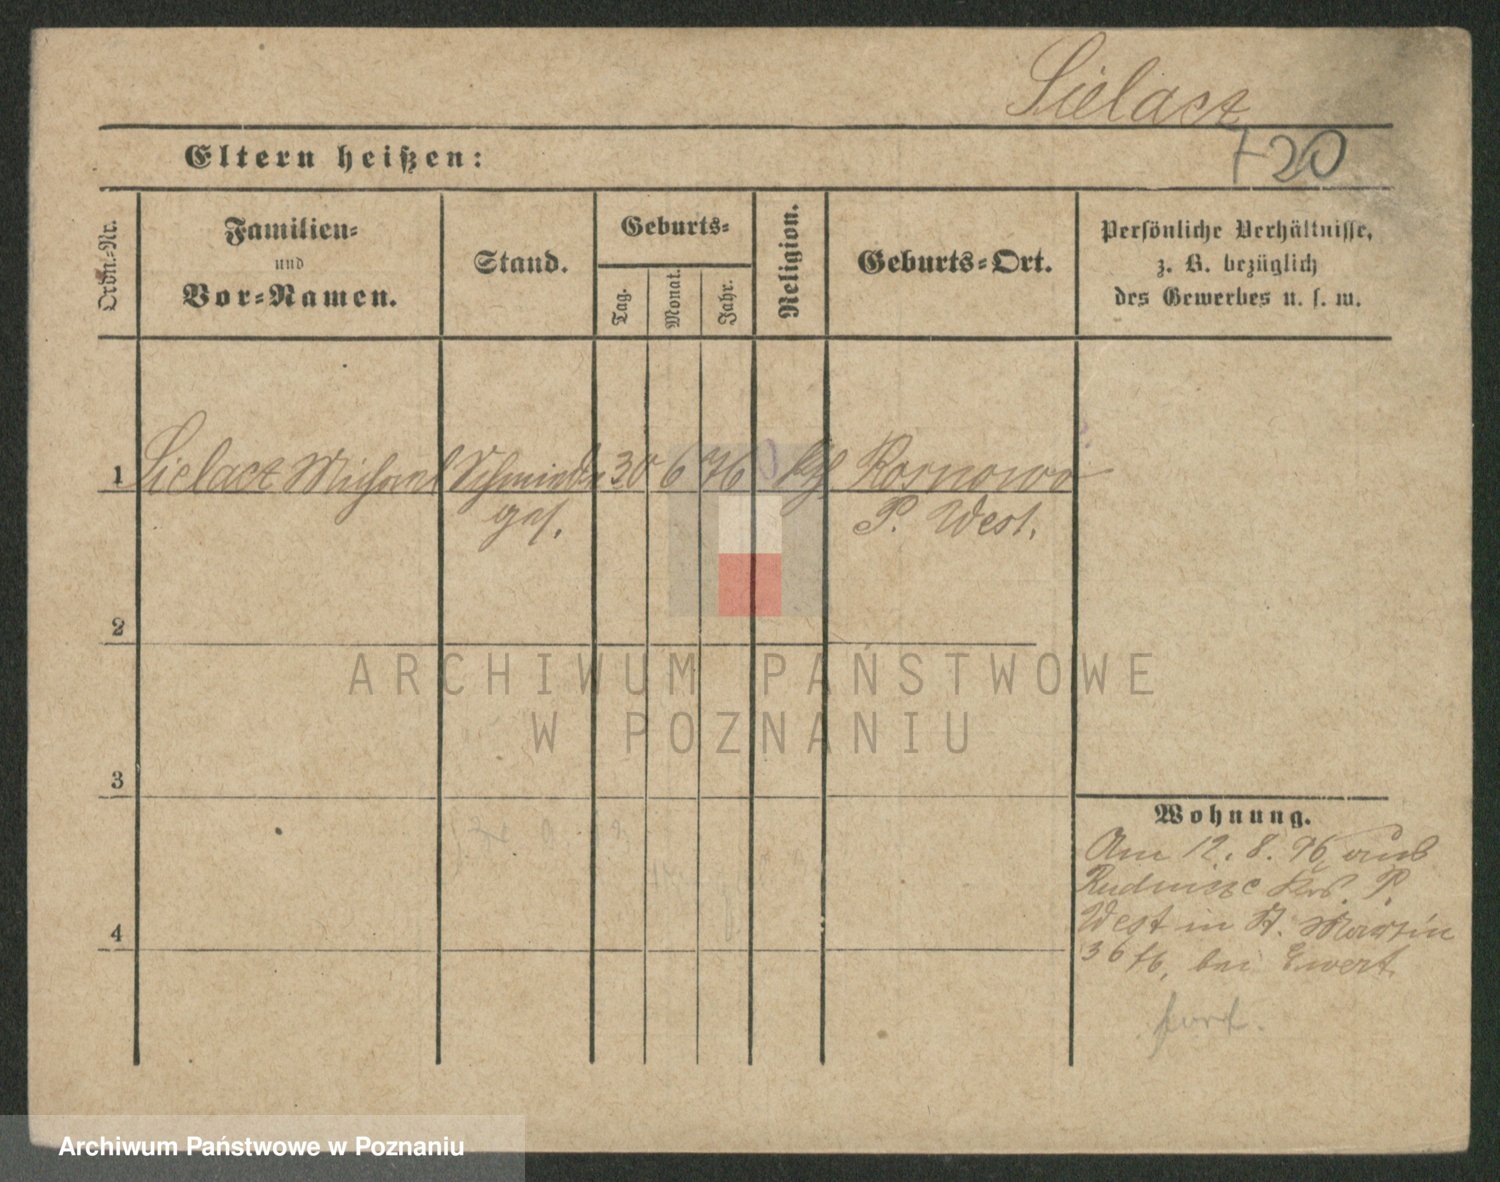 Sielact
Eltern heißen:
720
Ordn.-Nr.
Familien-
und
Vor-Namen.
Stand.
Geburts-
Tag.
Monat.
Jahr.
Religion.
Geburts-Ort.
Persönliche Verhältnisse,
z. B. bezüglich
des Gewerbes u. s. w.
1 Sielact Michael Schmiede 30 6 76 kth Rosnowo
ges. P. West.
2
ARCHIWUM PAŃSTWOWE
W POZNANIU
3
Wohnung.
Am 12. 8. 96 aus
Rudnicze Krs. P.
4
West in St. Martin
36 bei Ewert
fort.
Archiwum Państwowe w Poznaniu